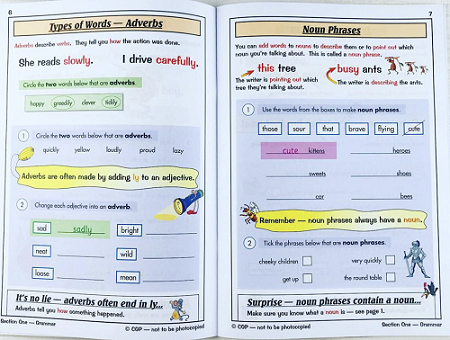 6
Types of Words — Adverbs
Adverbs describe verbs. They tell you how the action was done.
She reads slowly. I drive carefully.
Circle the two words below that are adverbs.
happy greedily clever tidily
1 Circle the two words below that are adverbs.
quickly yellow loudly proud lazy
Adverbs are often made by adding ly to an adjective.
2 Change each adjective into an adverb.
sad sadly bright
neat wild
loose mean
It's no lie — adverbs often end in ly...
Adverbs tell you how something happened.
Section One — Grammar
© CGP — not to be photocopied
7
Noun Phrases
You can add words to nouns to describe them or to point out which
noun you're talking about. This is called a noun phrase.
this tree
busy ants
The writer is pointing out which
tree they're talking about.
The writer is describing the ants.
1 Use the words from the boxes to make noun phrases.
those sour that brave flying cute
cute kittens heroes
sweets shoes
car bees
Remember — noun phrases always have a noun.
2 Tick the phrases below that are noun phrases.
cheeky children very quickly
get up the round table
Surprise — noun phrases contain a noun...
Make sure you know what a noun is — see page 1.
© CGP — not to be photocopied
Section One — Grammar